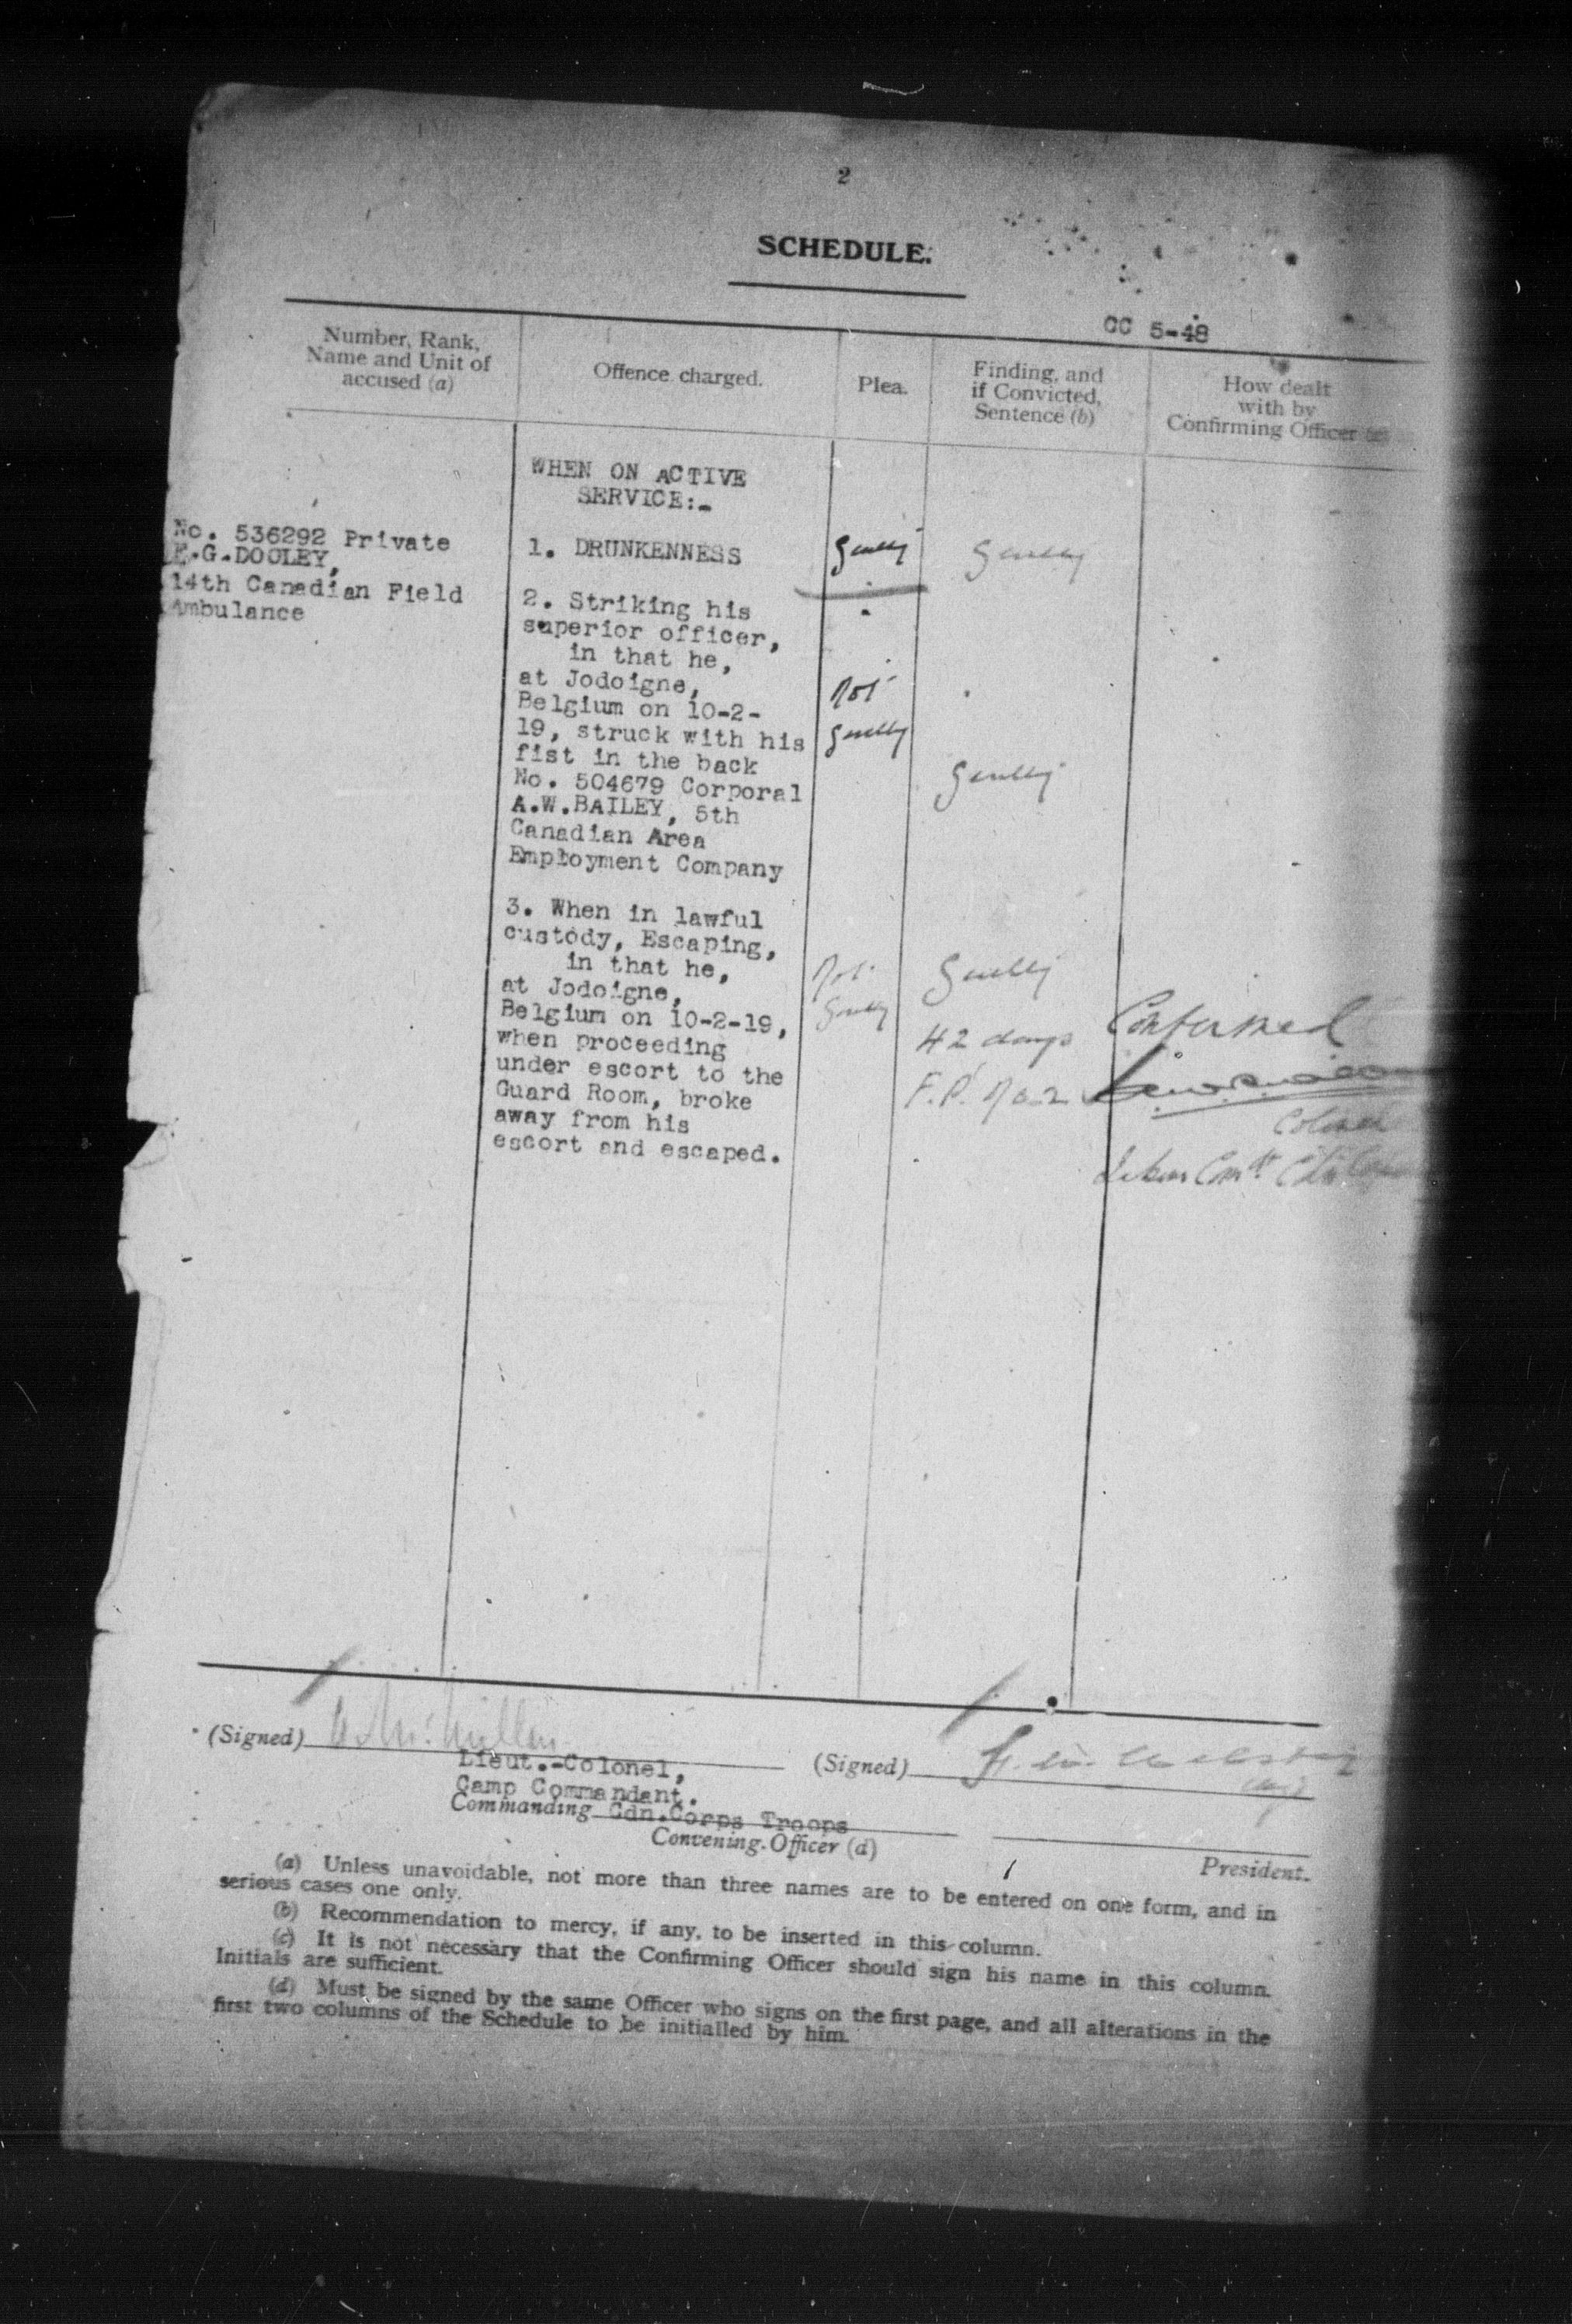 2
SCHEDULE.
CC 5-48
Number, Rank,
Name and Unit of
accused (a)
Offence charged.
Plea.
Finding, and
if Convicted,
Sentence (b)
How dealt
with by
Confirming Officer
No. 536292 Private
E.G.DOOLEY,
14th Canadian Field
Ambulance
WHEN ON ACTIVE
SERVICE:-
1. DRUNKENNESS
2. Striking his
superior officer,
in that he,
at Jodoigne,
Belgium on 10-2-
19, struck with his
fist in the back
No. 504679 Corporal
A.W.BAILEY, 5th
Canadian Area
Employment Company
3. When in lawful
custody, Escaping,
in that he,
at Jodoigne,
Belgium on 10-2-19,
when proceeding
under escort to the
Guard Room, broke
away from his
escort and escaped.
Guilty
Not
Guilty
Not
Guilty
Guilty
Guilty
Guilty
42 days
F.P. No 2
Confirmed
Colonel
(Signed)
Lieut.-Colonel,
Camp Commandant.
Commanding Cdn.Corps Troops
Convening Officer (d)
(Signed)
President.
(a) Unless unavoidable, not more than three names are to be entered on one form, and in
serious cases one only.
(b) Recommendation to mercy, if any, to be inserted in this column.
(c) It is not necessary that the Confirming Officer should sign his name in this column.
Initials are sufficient.
(d) Must be signed by the same Officer who signs on the first page, and all alterations in the
first two columns of the Schedule to be initialled by him.